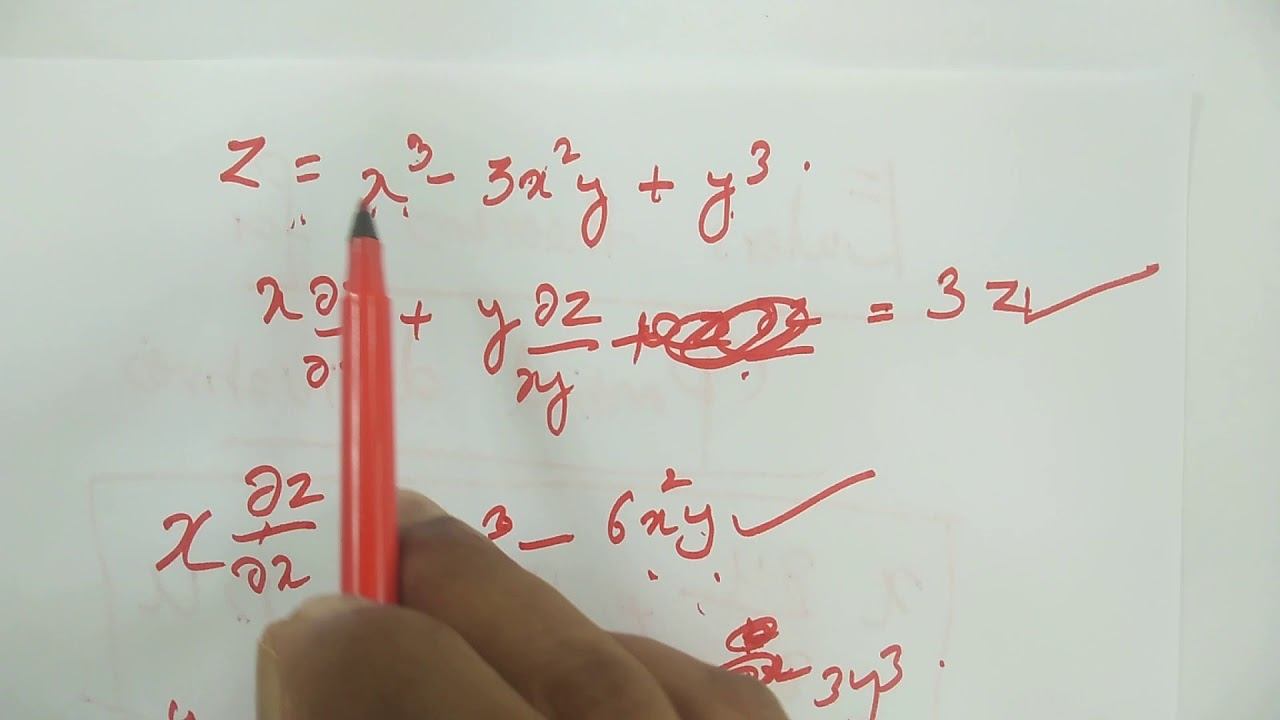 z = x³ - 3x²y + y³.
x ∂ + y ∂z/xy + = 3z
x ∂z/∂x ³ - 6x²y
3y³.